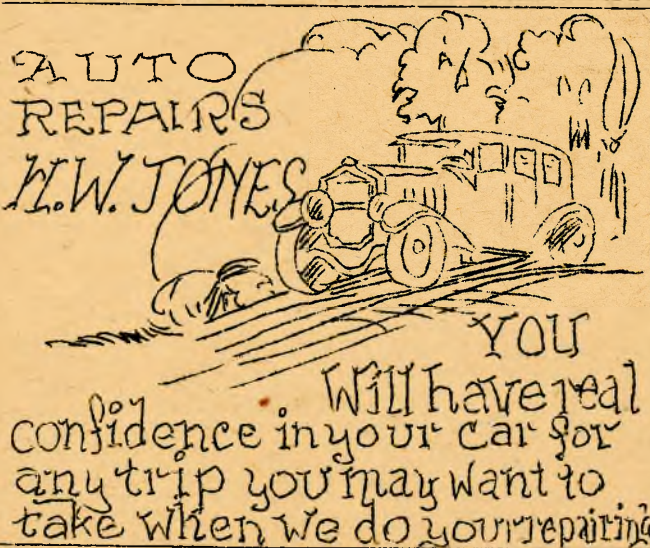 AUTO
REPAIRS
H.W. JONES
YOU
Will have real
confidence in your car for
any trip you may want to
take when we do your repairing